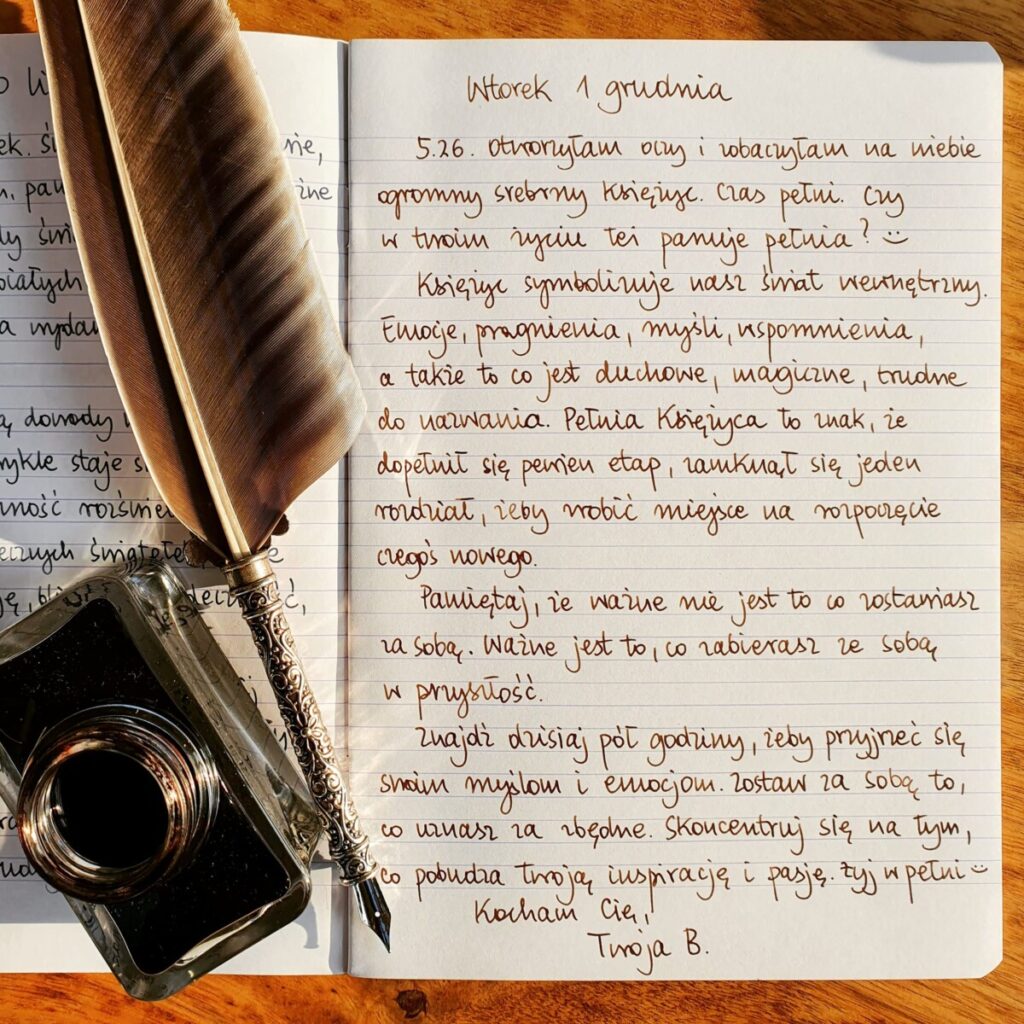 o li
ek. śi nie,
n. pan żne
dy świ
białych
a wydaw
ą dowody
wykle staje s
nność rozświe
ecznych światełe
ję, bli deczność,
Wtorek 1 grudnia
5.26. Otworzyłam oczy i zobaczyłam na niebie
ogromny srebrny Księżyc. Czas pełni. Czy
w twoim życiu też panuje pełnia? :)
Księżyc symbolizuje nasz świat wewnętrzny.
Emocje, pragnienia, myśli, wspomnienia,
a także to co jest duchowe, magiczne, trudne
do nazwania. Pełnia Księżyca to znak, że
dopełnił się pewien etap, zamknął się jeden
rozdział, żeby zrobić miejsce na rozpoczęcie
czegoś nowego.
Pamiętaj, że ważne nie jest to co zostawiasz
za sobą. Ważne jest to, co zabierasz ze sobą
w przyszłość.
Znajdź dzisiaj pół godziny, żeby przyjrzeć się
swoim myślom i emocjom. Zostaw za sobą to,
co uznasz za zbędne. Skoncentruj się na tym,
co pobudza Twoją inspirację i pasję. Żyj w pełni :)
Kocham Cię,
Twoja B.